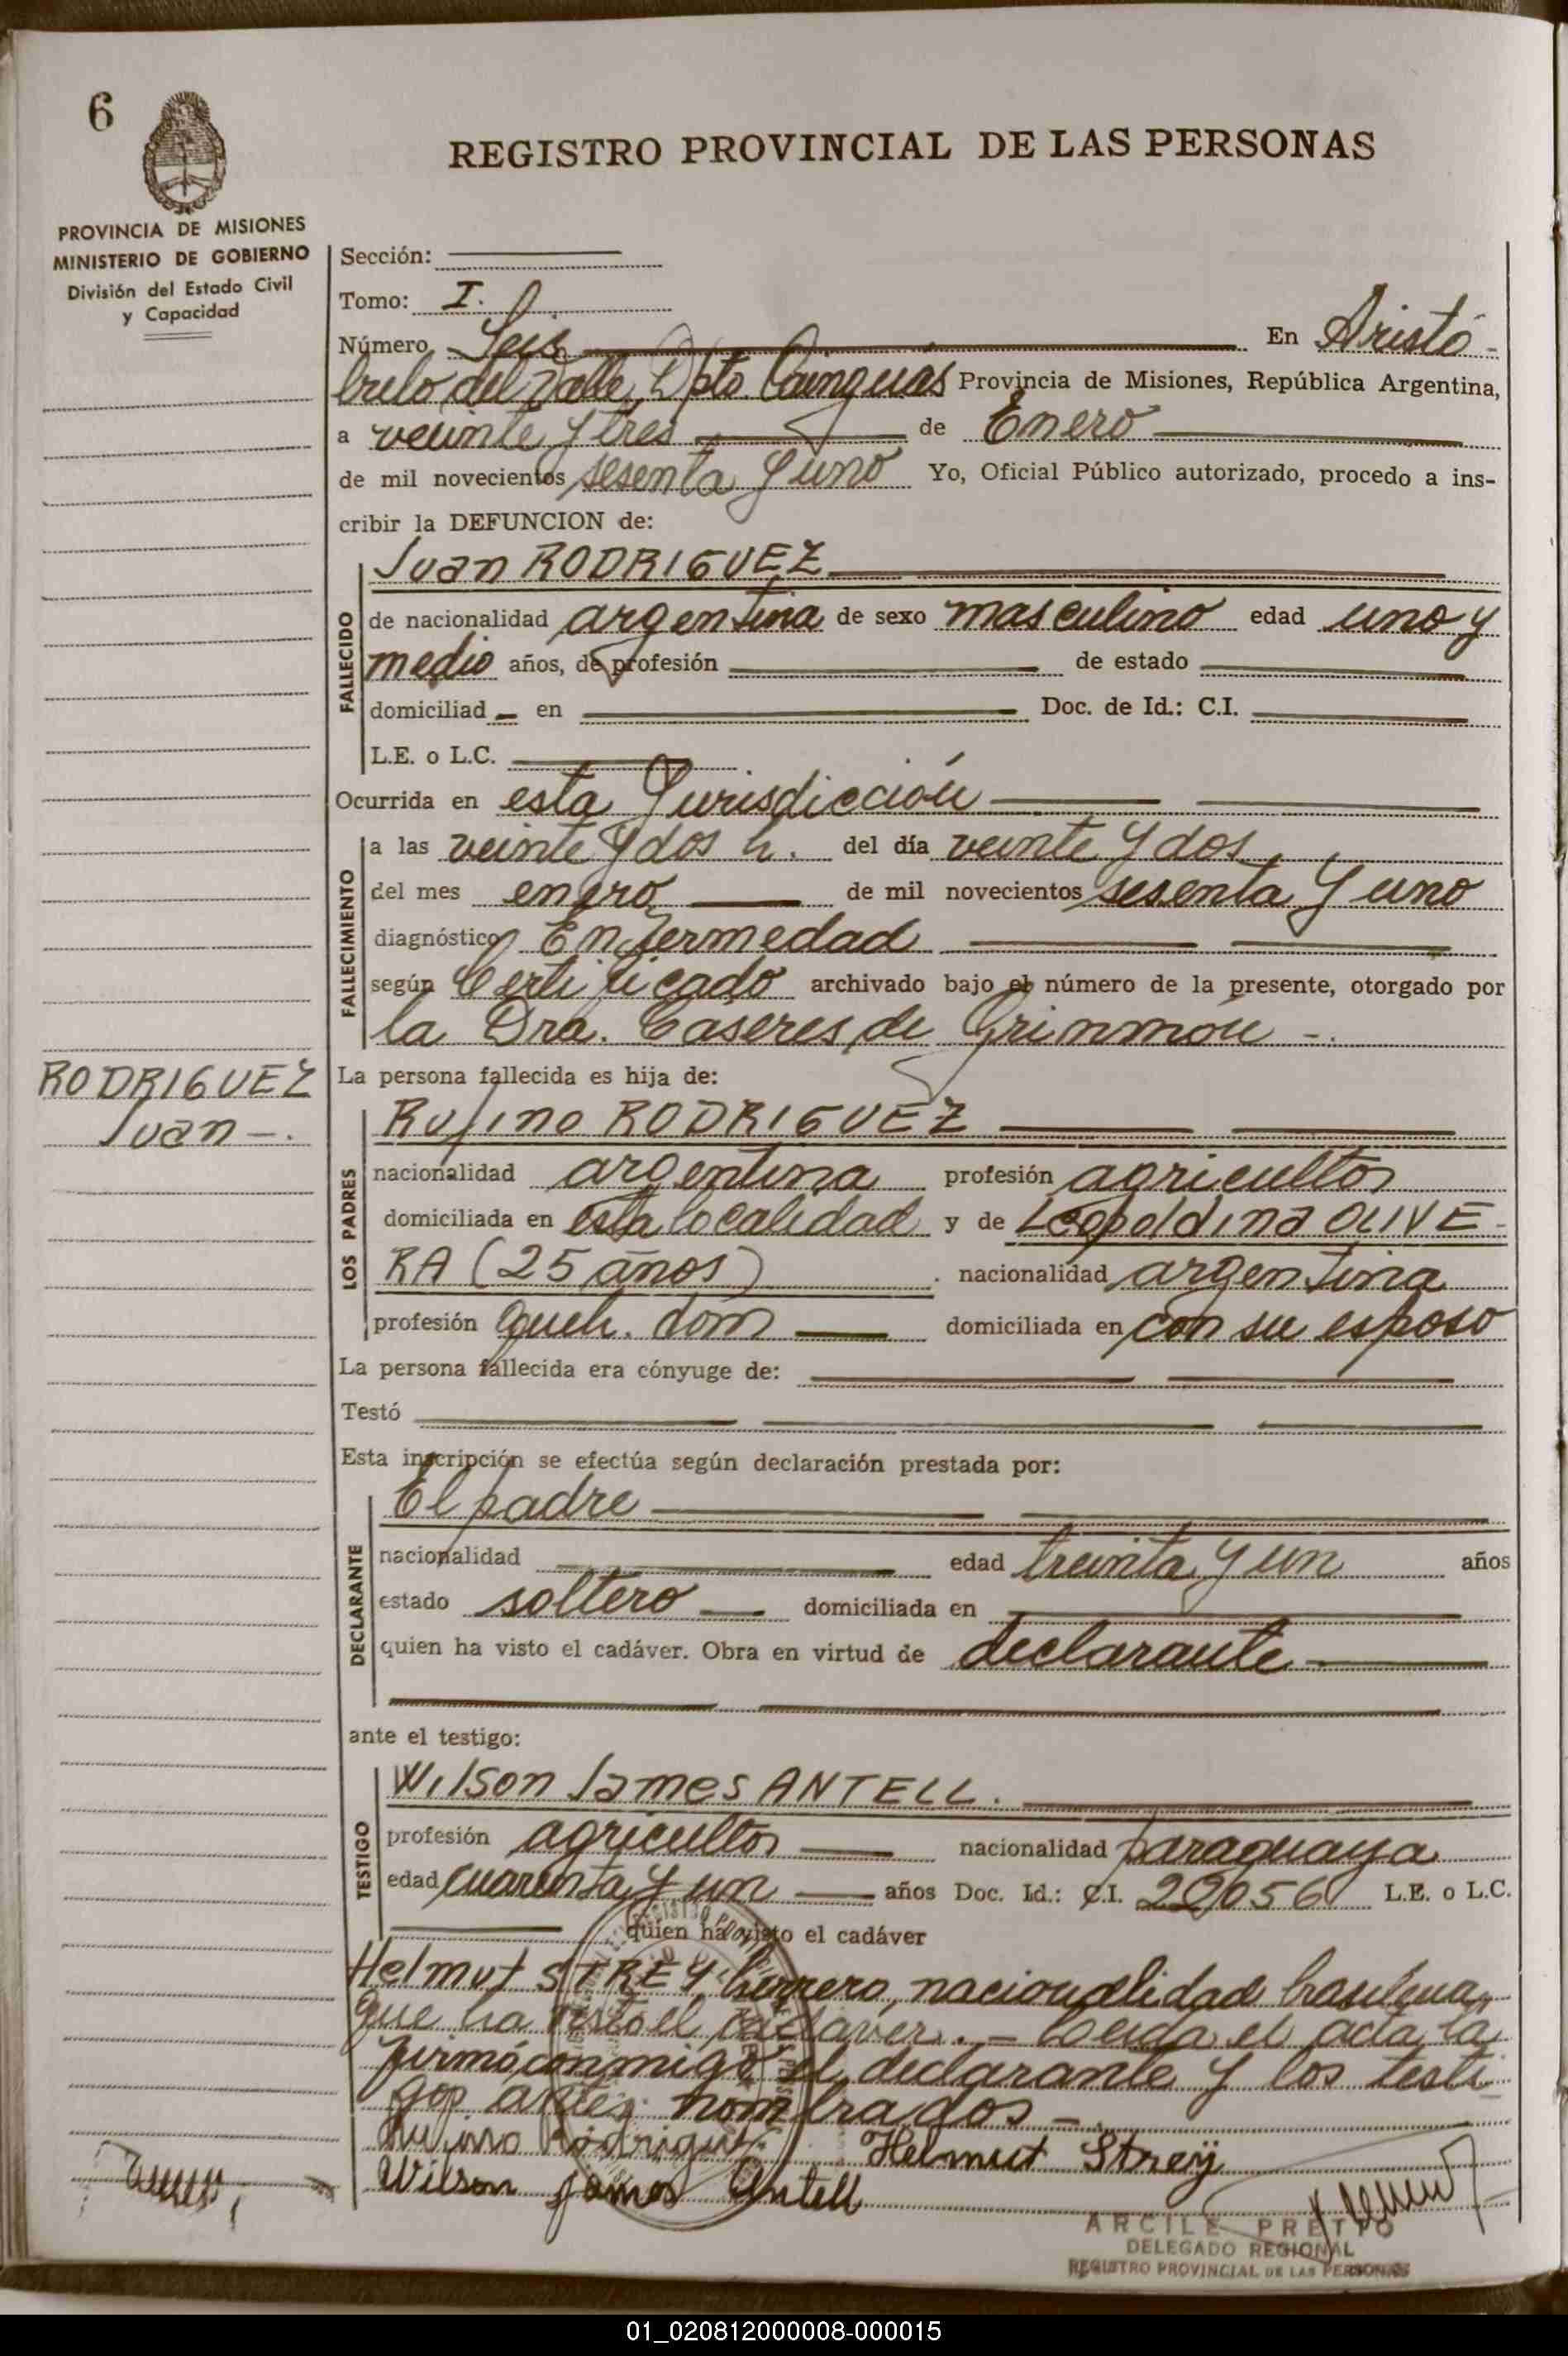 6
REGISTRO PROVINCIAL DE LAS PERSONAS
PROVINCIA DE MISIONES
MINISTERIO DE GOBIERNO
División del Estado Civil
y Capacidad
Sección:
Tomo: I.
Número Seis En Aristó-
bulo del Valle, Dpto. Cainguás Provincia de Misiones, República Argentina,
a veinte y tres de Enero
de mil novecientos sesenta y uno Yo, Oficial Público autorizado, procedo a ins-
cribir la DEFUNCION de:
Juan RODRIGUEZ
FALLECIDO
de nacionalidad argentina de sexo masculino edad uno y
medio años, de profesión de estado
domiciliad en Doc. de Id.: C.I.
L.E. o L.C.
Ocurrida en esta Jurisdicción
FALLECIMIENTO
a las veinte y dos h. del día veinte y dos
del mes enero de mil novecientos sesenta y uno
diagnóstico Enfermedad
según Certificado archivado bajo el número de la presente, otorgado por
la Dra. Caseres de Grinmón -.
RODRIGUEZ
Juan -.
La persona fallecida es hija de:
LOS PADRES
Rufino RODRIGUEZ
nacionalidad argentina profesión agricultor
domiciliada en esta localidad y de Leopoldina OLIVE-
RA (25 años) nacionalidad argentina
profesión queh. dom domiciliada en con su esposo
La persona fallecida era cónyuge de:
Testó
Esta inscripción se efectúa según declaración prestada por:
DECLARANTE
El padre
nacionalidad edad treinta y un años
estado soltero domiciliada en
quien ha visto el cadáver. Obra en virtud de declarante
ante el testigo:
TESTIGO
Wilson James ANTELL.
profesión agricultor nacionalidad paraguaya
edad cuarenta y un años Doc. Id.: C.I. 22056 L.E. o L.C.
quien ha visto el cadáver
Helmut STREY, herrero, nacionalidad
que ha visto el cadaver. - Leida el acta la
firmó conmigo el declarante y los testi-
gos antes nombrados -.
Rufino Rodriguez Helmut Strey
Wilson James Antell
ARCILE PRETTO
DELEGADO REGIONAL
REGISTRO PROVINCIAL DE LAS PERSONAS
01_020812000008-000015